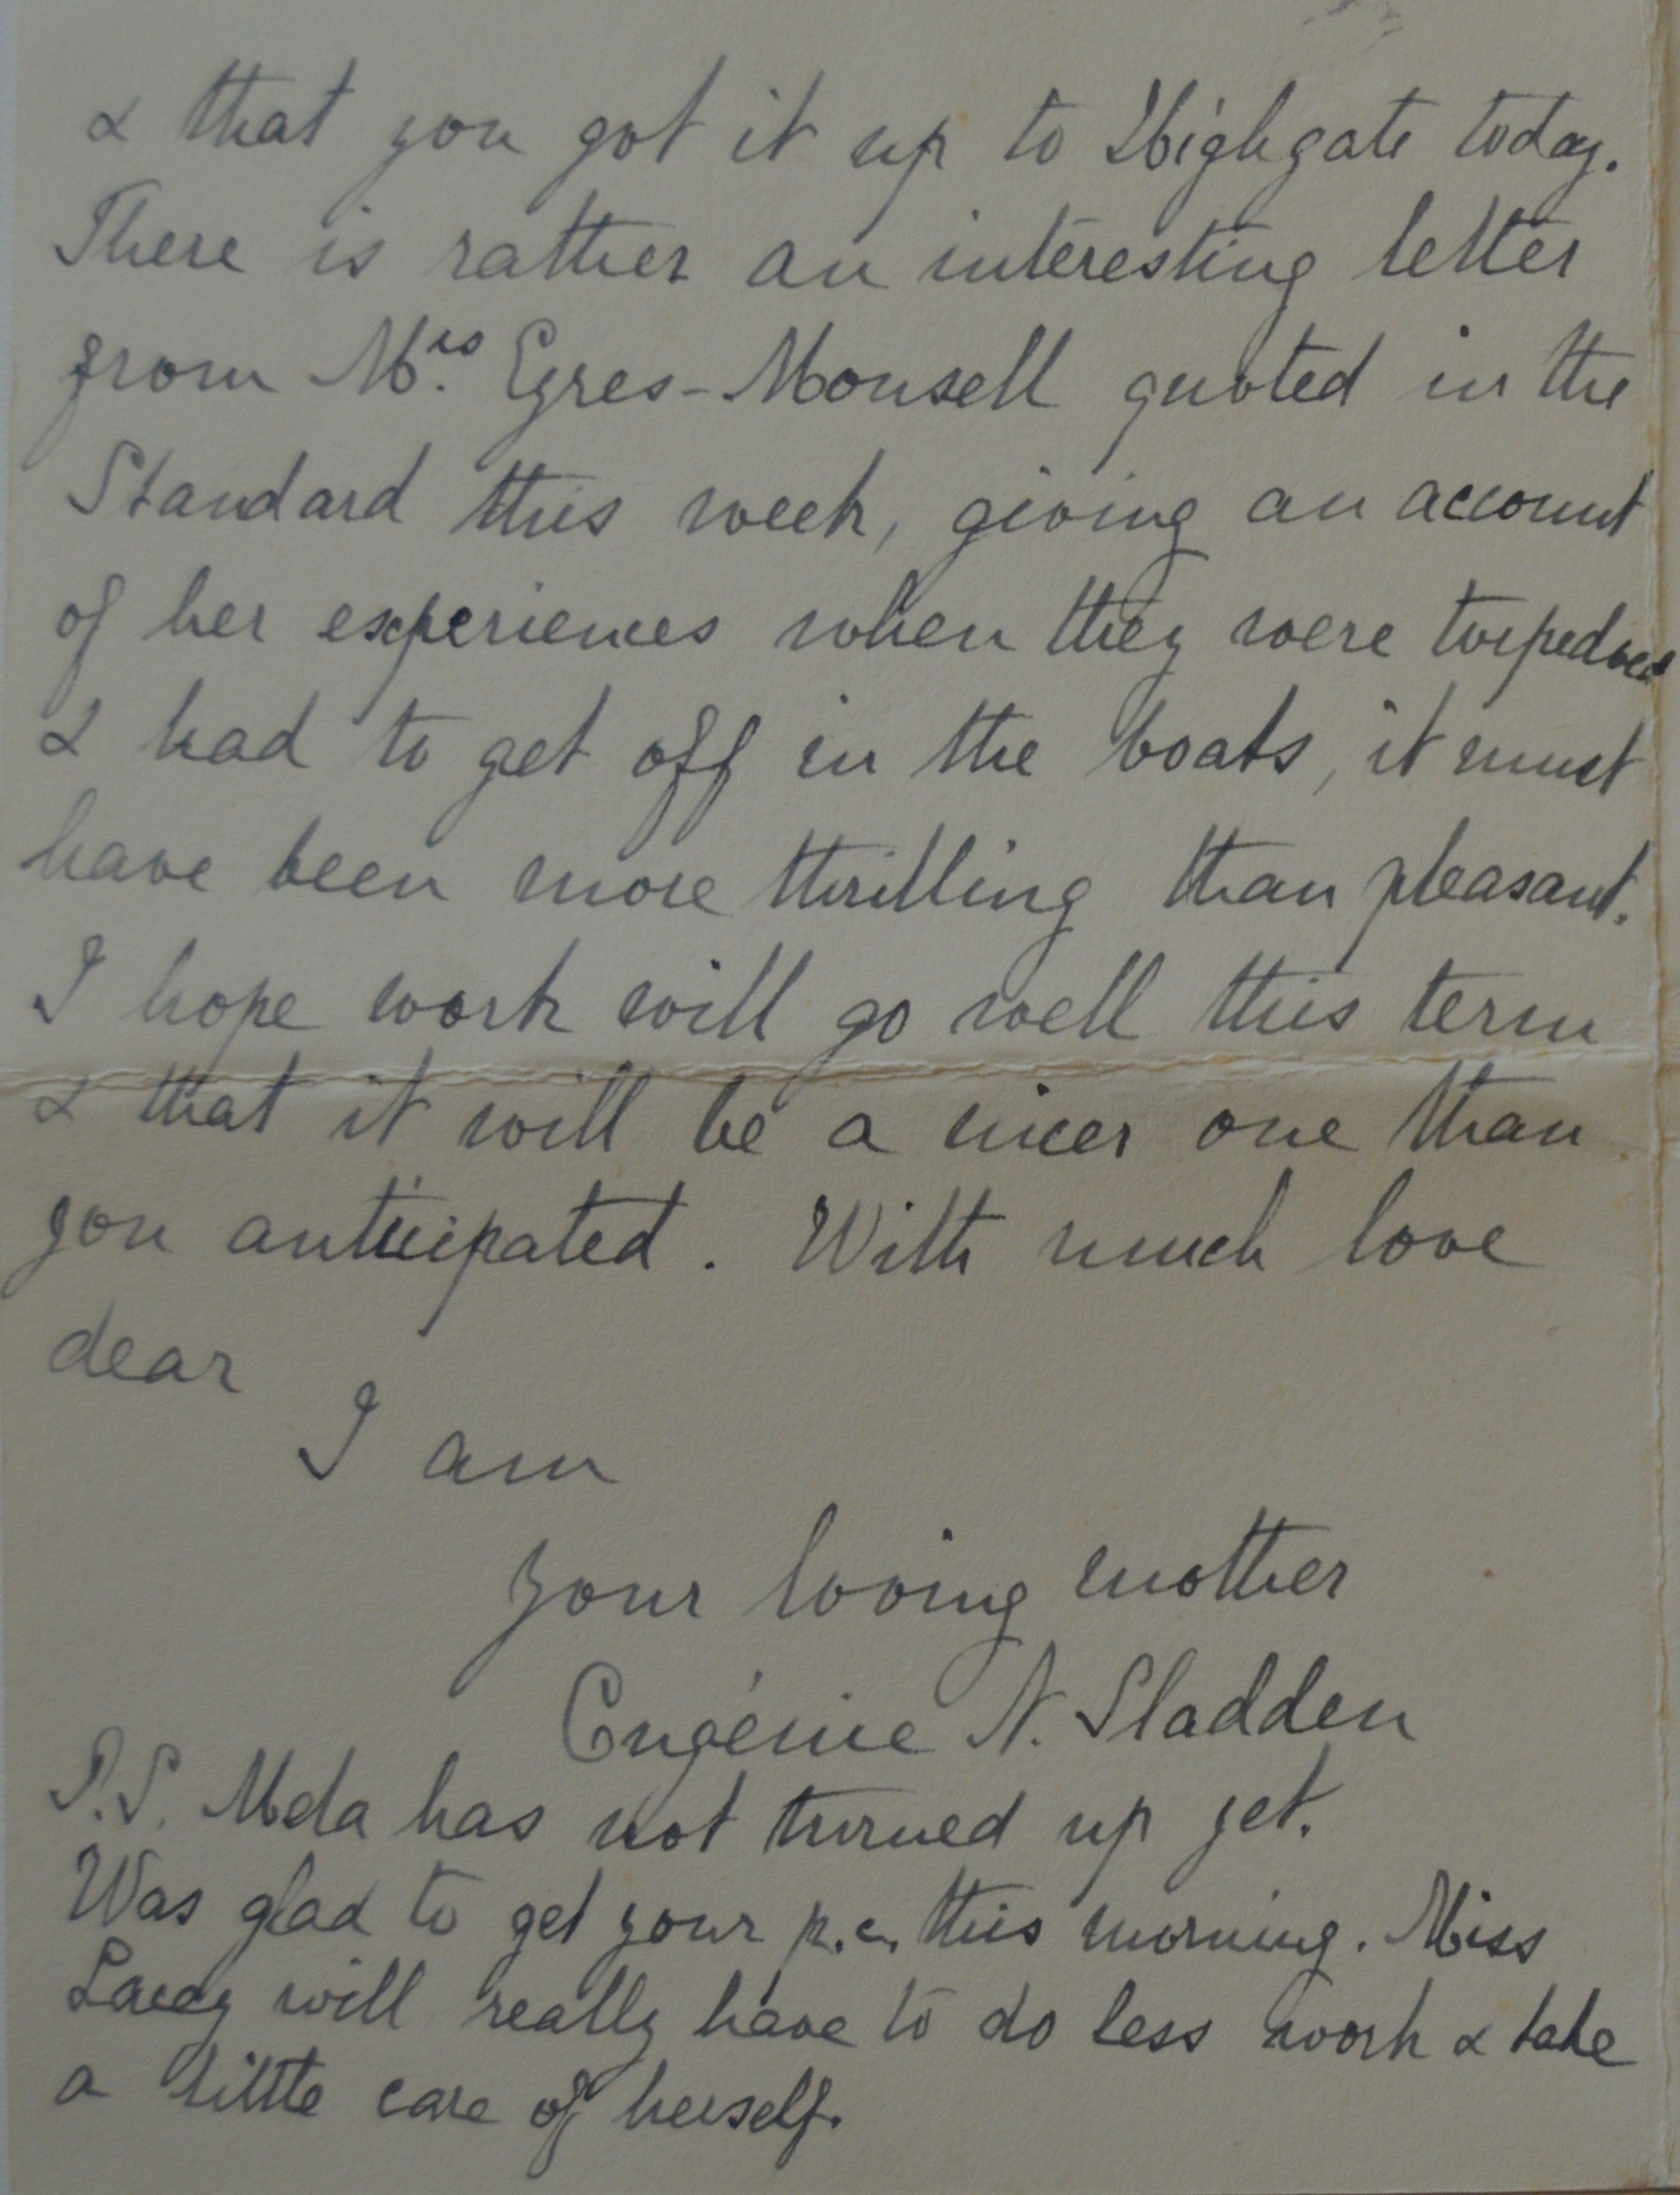 & that you got it up to Highgate today.
There is rather an interesting letter
from Mrs. Eyres-Monsell quoted in the
Standard this week, giving an account
of her experiences when they were torpedoed
& had to get off in the boats, it must
have been more thrilling than pleasant.
I hope work will go well this term
& that it will be a nicer one than
you anticipated. With much love
dear
I am
your loving mother
Eugénie N. Sladden
P.S. Mela has not turned up yet.
Was glad to get your p.c. this morning. Miss
Lacey will really have to do less work & take
a little care of herself.